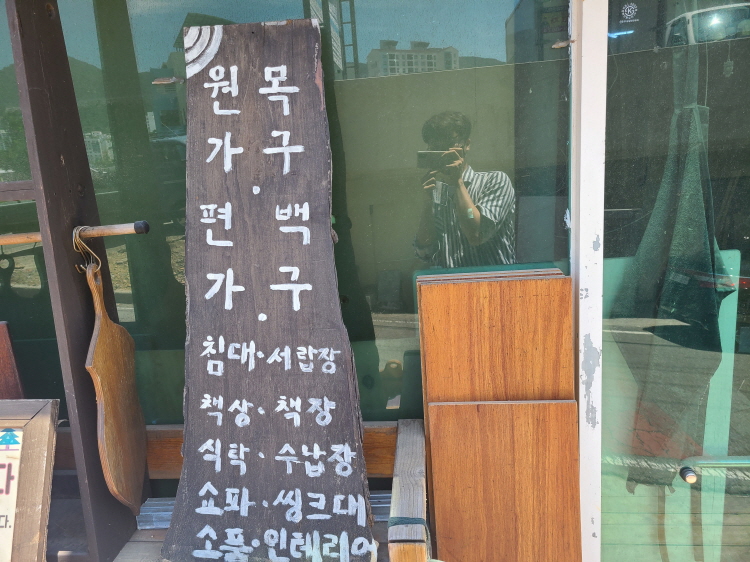 원목
가구.
편백
가구.
침대·서랍장
책상·책장
식탁·수납장
쇼파·씽크대
소품·인테리어